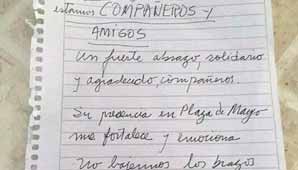 estamos COMPAÑEROS Y
AMIGOS
Un fuerte abrazo solidario
y agradecido, compañeros.
Su presencia en Plaza de Mayo
me fortalece y emociona
No bajemos los brazos